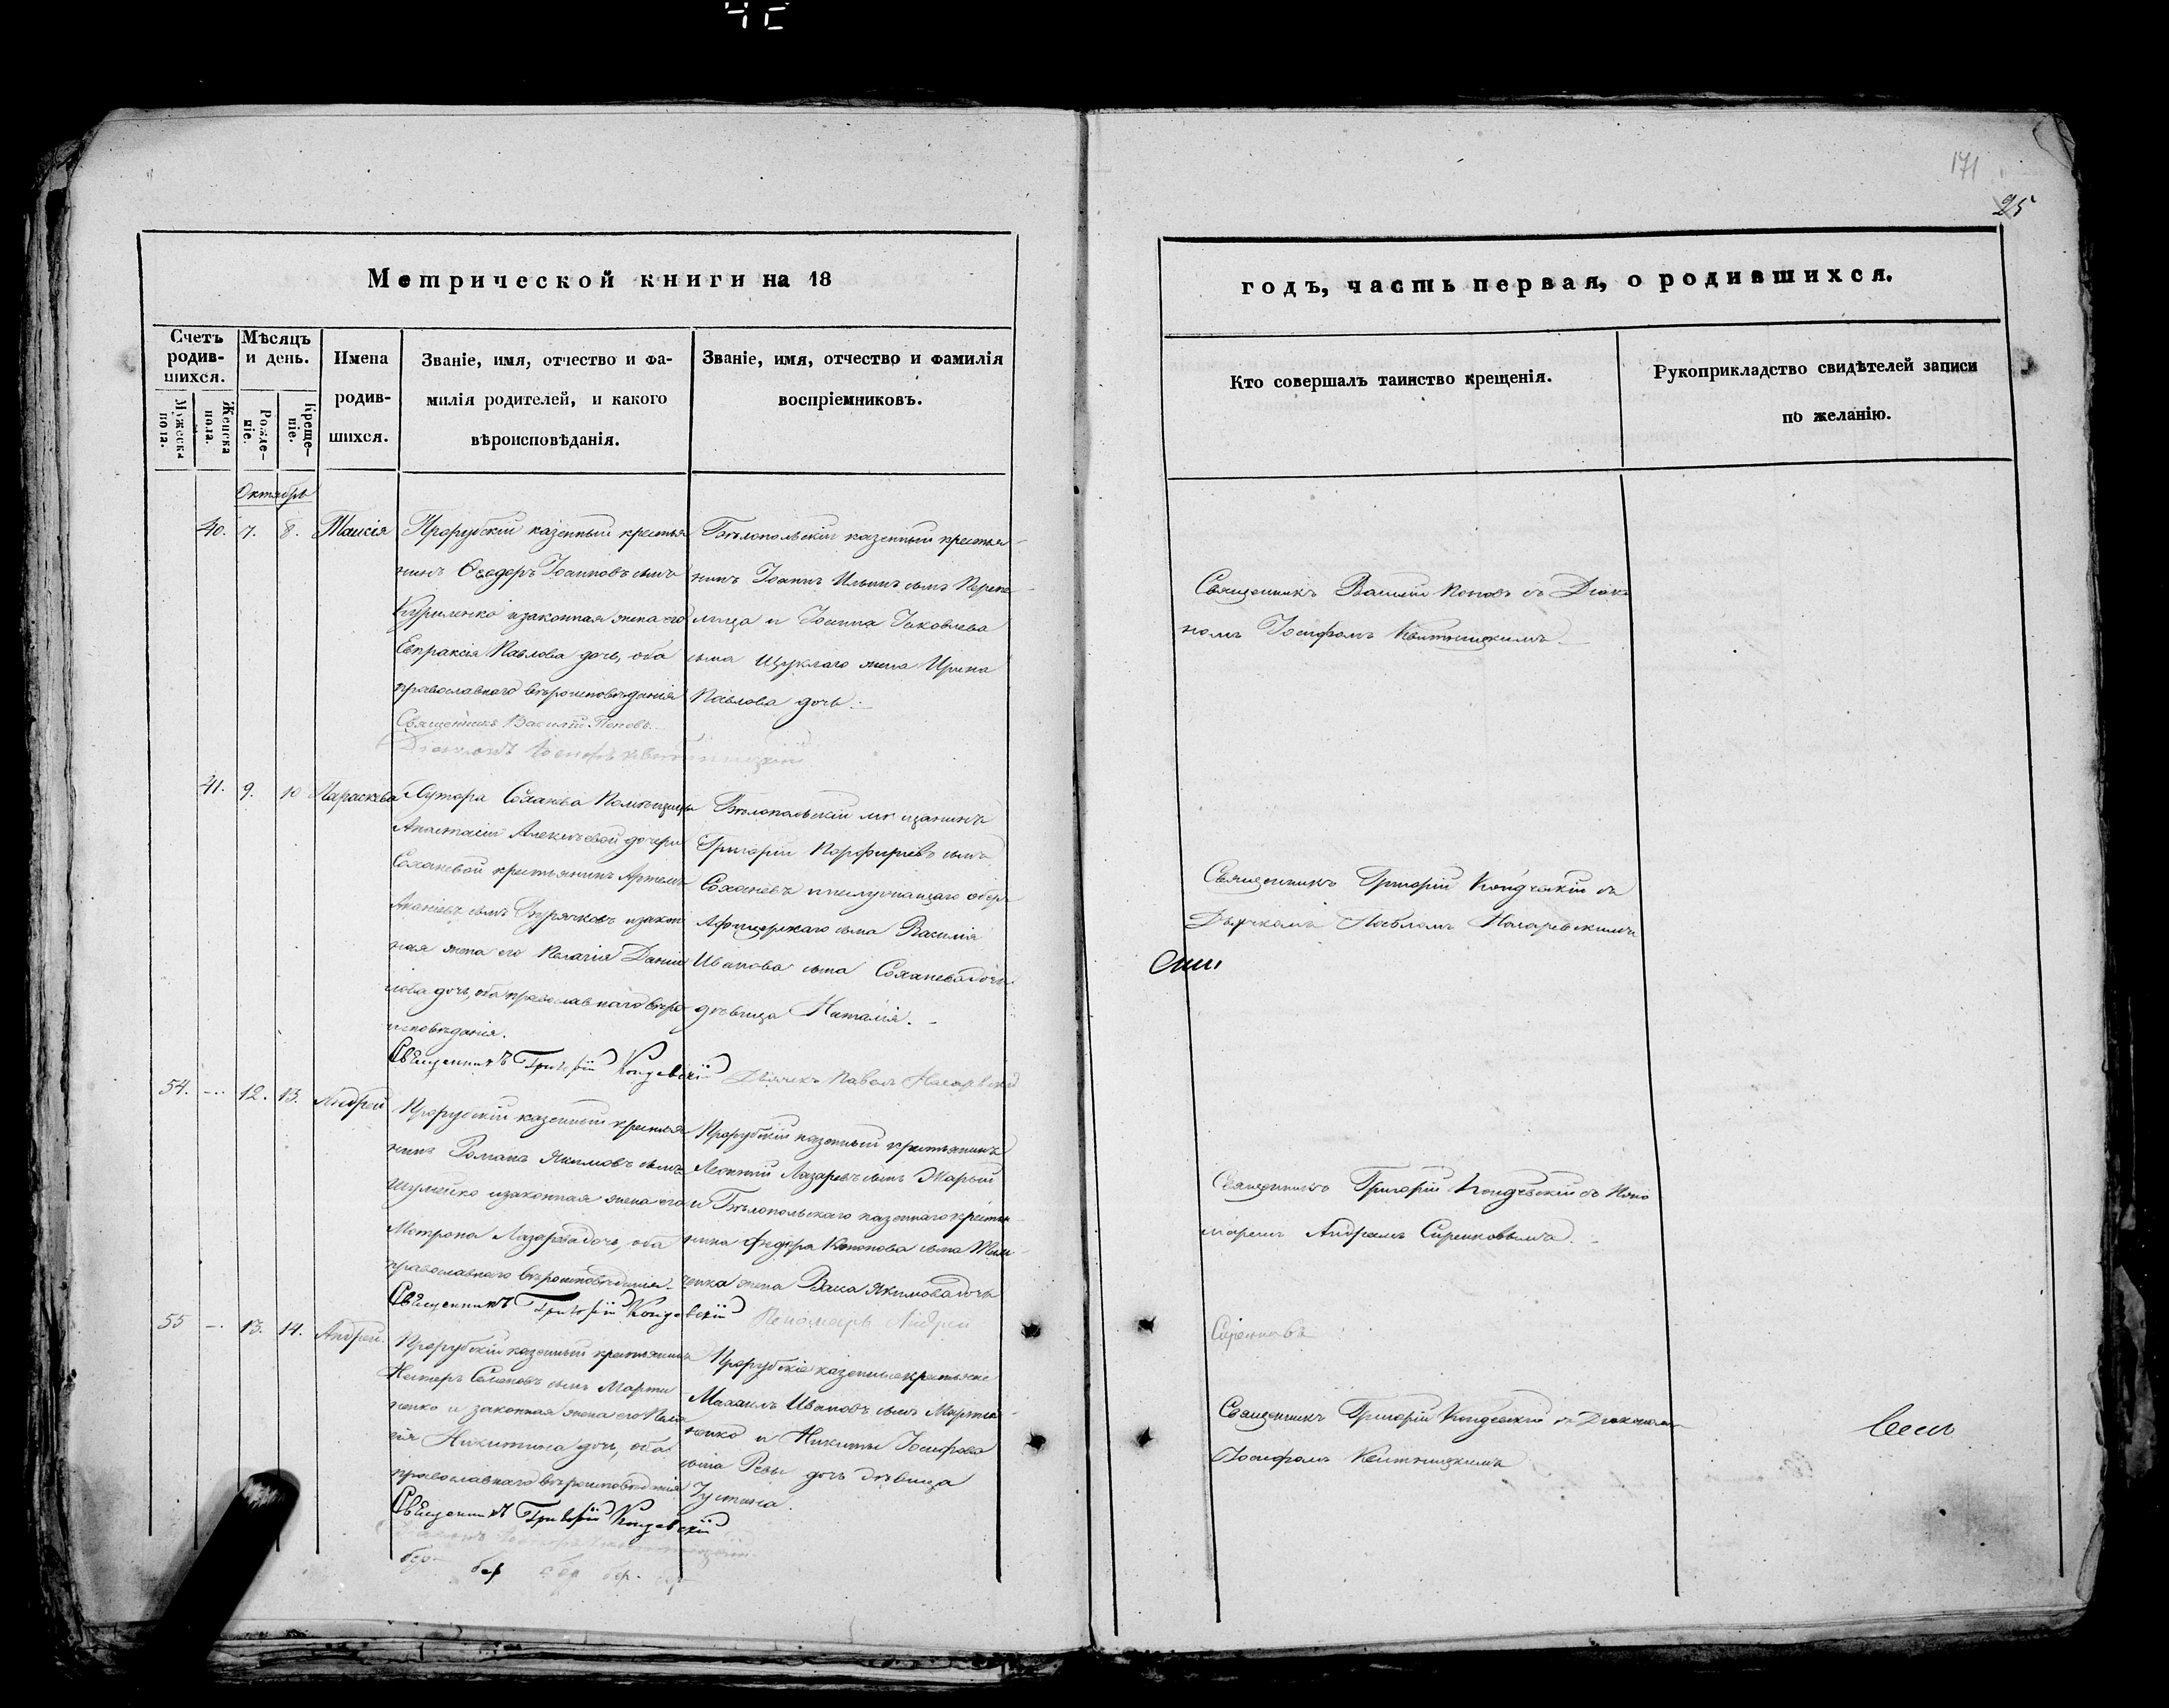 171
25
Метрической книги на 18
годъ, часть первая, о родившихся.
Счетъ родив-шихся.
Мужеска пола.
Женска пола.
Мѣсяцъ и день.
Рожде-ніе.
Креще-ніе.
Имена
родив-
шихся.
Званіе, имя, отчество и фа-
милія родителей, и какого
вѣроисповѣданія.
Званіе, имя, отчество и фамилія
воспріемниковъ.
Кто совершалъ таинство крещенія.
Рукоприкладство свидѣтелей записи
по желанію.
Октябрь
40. 7. 8. Таисія
Прорубскій казенный крестья
нинъ Ѳеодоръ Іоанновъ сынъ
Куриленко и законная жена его
Евпраксія Павлова дочь, оба
православнаго вѣроисповѣданія
Священникъ Василій Поповъ
Діаконъ Іосифъ
Бѣлопольскій казенный крестья-
нинъ Іоаннъ Ильинъ сынъ Перепе-
лица и Іоанна Іаковлева
сына Щуклаго жена Ирина
Павлова дочь.
Священникъ Василій Поповъ съ Діако
номъ Іосифомъ Квитницкимъ
41. 9. 10 Параскева
Хутора Соханева Помѣщицы
Анастасіи Алексѣевой дочери
Соханевой крестьянинъ Артемъ
Ананіевъ сынъ Бурячковъ и закон
ная жена его Пелагія Данiи
лова дочь, оба православнаго вѣро
исповѣданія.
Священникъ Григорій Кондевскій Дьячекъ Павелъ
Бѣлопольскій мѣщанинъ
Григорій Порфиріевъ сынъ
Соханевъ и неслужащаго оберъ
Афицерскаго сына Василія
Иванова сына Соханева дочь
дѣвица Наталія.
Священникъ Григорій Кондевскій съ
Дьячкомъ Павломъ
54. 12. 13. Андрей
Прорубскій казенный крестья
нинъ Романъ Якимовъ сынъ
Шумейко и законная жена его
Мотрона Лазарева дочь, оба
православнаго вѣроисповѣданія.
Священникъ Григорій Кондевскій Пономарь Андрей
Прорубскій казенный крестьянинъ
Леонтій Лазаревъ сынъ
и Бѣлопольскаго казеннаго крестья-
нина Федора Кононова сына
ченка жена Васса Якимова дочь
Священникъ Григорій Кондевскій съ Поно
маремъ Андреемъ Сиренковымъ
Сиренковъ
55 13. 14. Андрей
Прорубскій казенный крестьянинъ
Несторъ Семеновъ сынъ Марти
ненко и законная жена его Пела
гія Никитина дочь, оба
православнаго вѣроисповѣданія
Священникъ Григорій Кондевскій
Прорубскіе казенные крестьяне
Михаилъ Ивановъ сынъ Марти-
ненко и Никиты Іосифова
сына Ревы дочь дѣвица
Іустина.
Священникъ Григорій Кондевскій съ Діакономъ
Іосифомъ Квитницкимъ